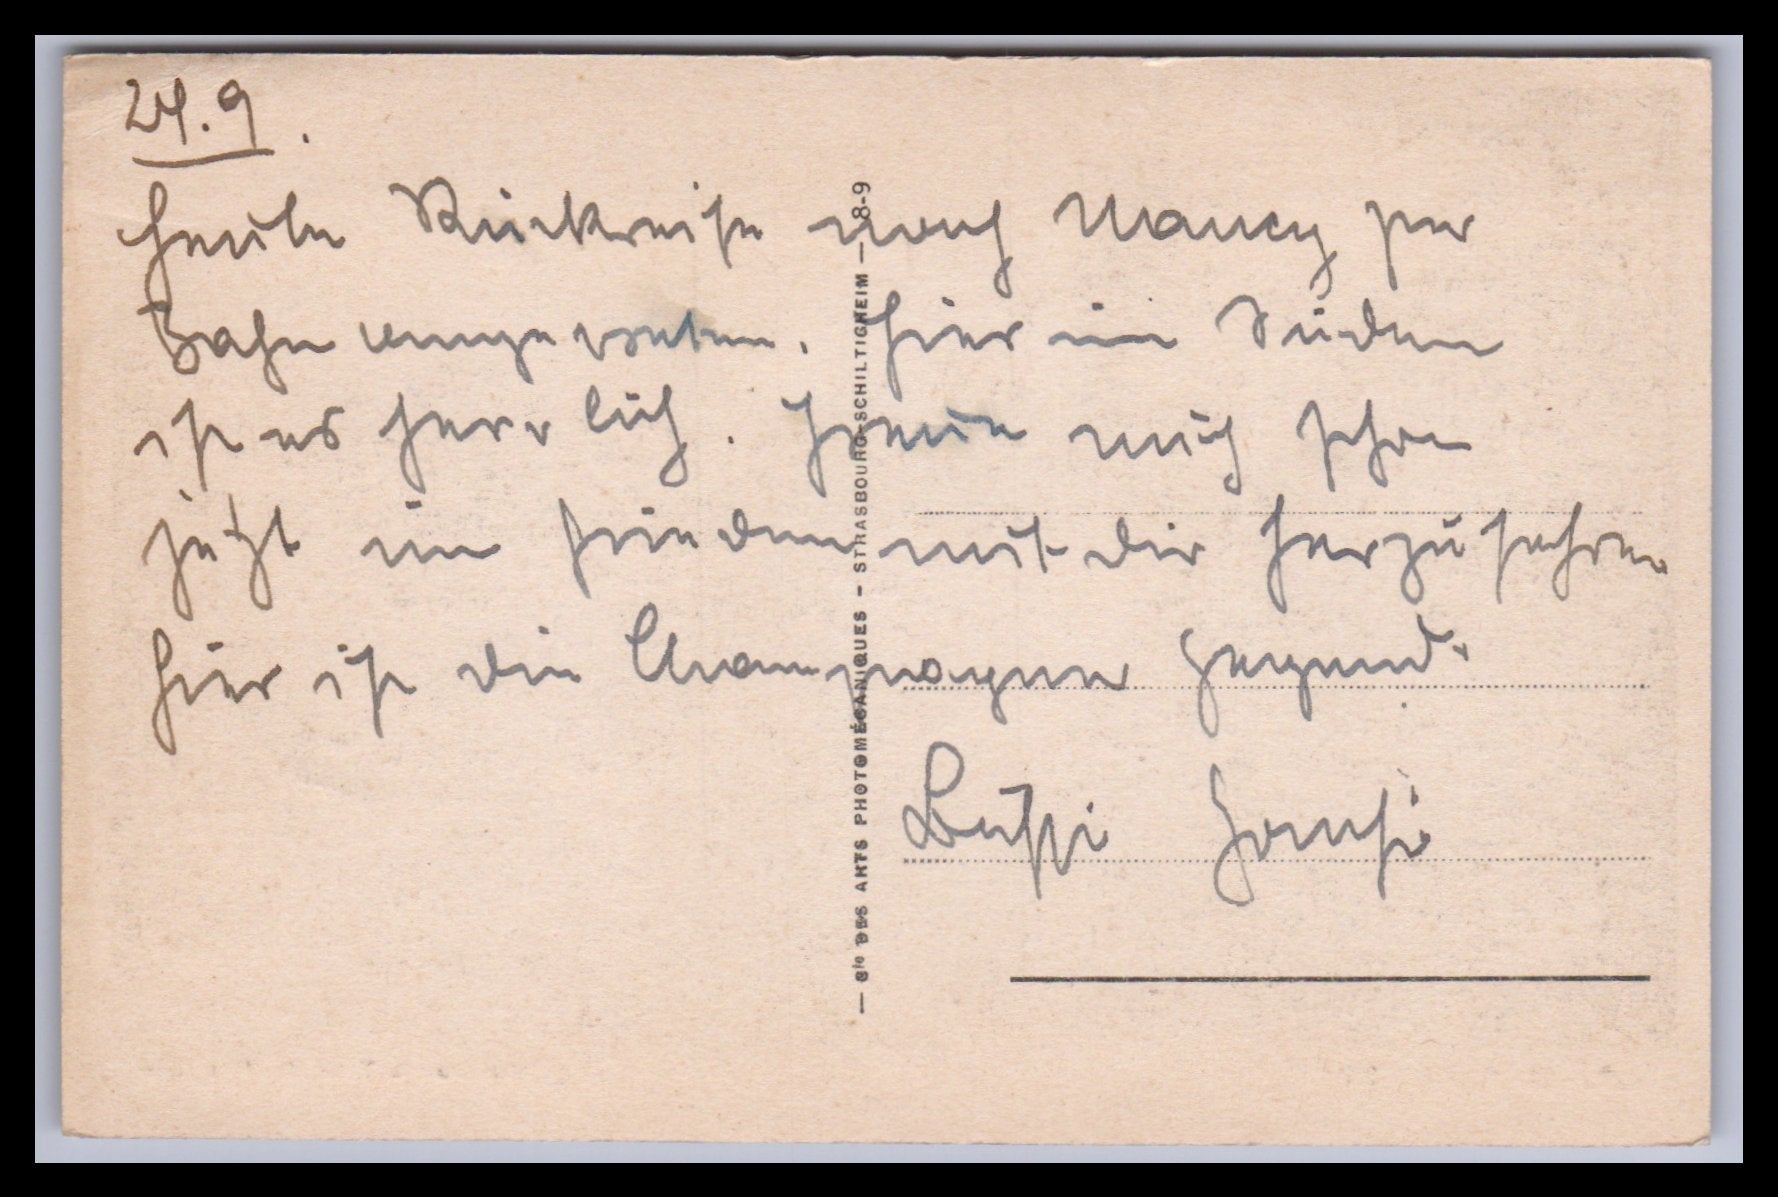 24.9.
Heute Rückreise nach Nancy per
Bahn angetreten. Hier im Süden
ist es herrlich. Freue mich schon
jetzt im Frieden mit dir herzufahren
hier ist die Champagner Gegend.
Bussi Hansi
— Sté DES ARTS PHOTOMÉCANIQUES - STRASBOURG-SCHILTIGHEIM — 8-9